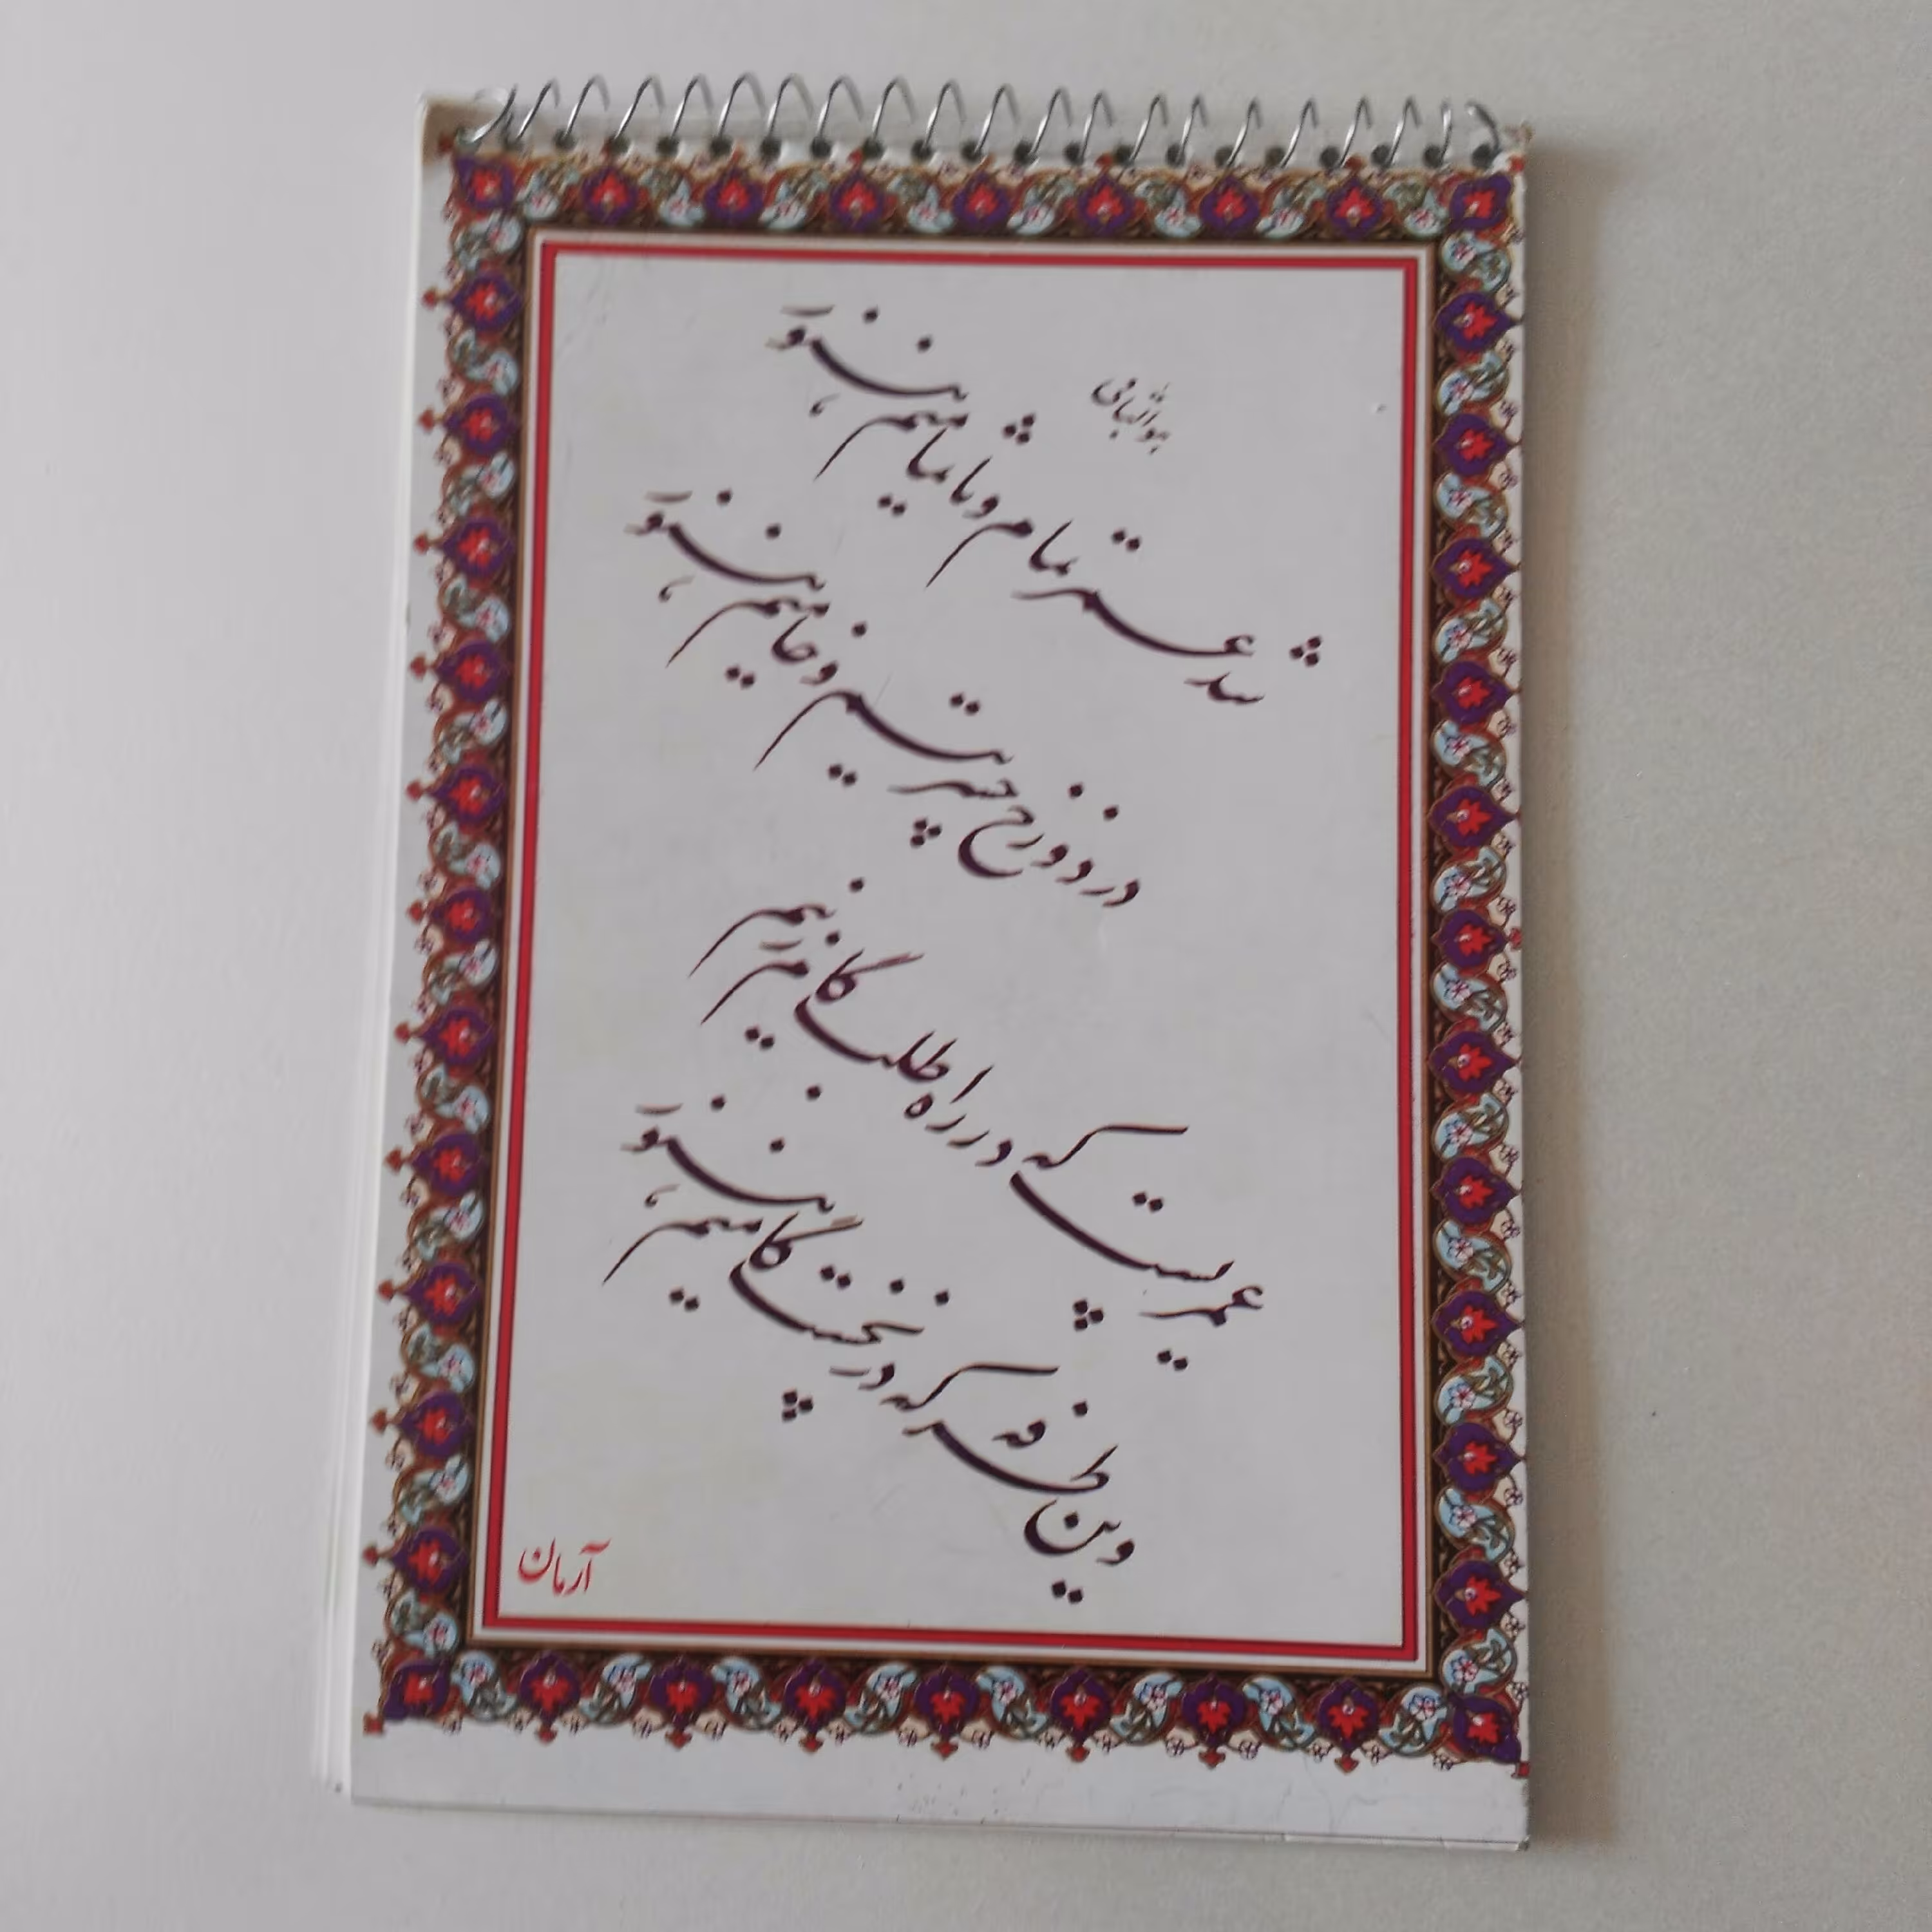 هوالباقی
شد عمر تمام و ناتمامیم هنوز
در دوزخ حیرتیم و خامیم هنوز
عمریست که در راه طلب گام زنیم
وین طرفه که در نخست گامیم هنوز
آرمان